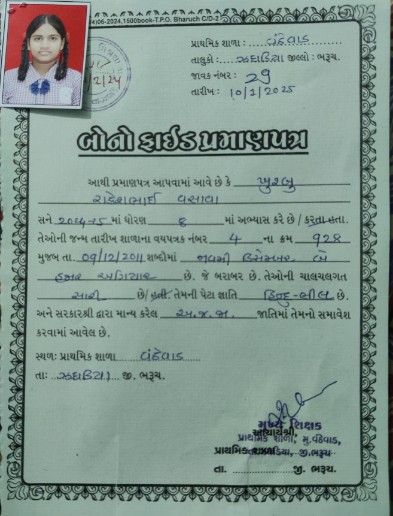 4106-2024,1500book-T.P.O. Bharuch C/D-2
પ્રાથમિક શાળા : વંઠેવાડ
તાલુકો : ઝઘડિયા જીલ્લો : ભરૂચ.
જાવક નંબર : 29
તારીખ : 10/2/2025
બોનોફાઈડ પ્રમાણપત્ર
આથી પ્રમાણપત્ર આપવામાં આવે છે કે ખુશ્બુ
રાકેશભાઈ વસાવા
સને 2024-25 માં ધોરણ 8 માં અભ્યાસ કરે છે / કરતા હતા.
તેઓની જન્મ તારીખ શાળાના વયપત્રક નંબર 4 ના ક્રમ 928
મુજબ તા. 09/12/2011 શબ્દોમાં નવમી ડિસેમ્બર બે
હજાર અગિયાર છે. જે બરાબર છે. તેઓની ચાલચલગત
સારી છે/હતી. તેમની પેટા જ્ઞાતિ હિન્દુ-ભીલ છે.
અને સરકારશ્રી દ્વારા માન્ય કરેલ અ.જ.જા. જાતિમાં તેમનો સમાવેશ
કરવામાં આવેલ છે.
સ્થળ: પ્રાથમિક શાળા વંઠેવાડ
તાઃ ઝઘડિયા જી. ભરૂચ.
મુખ્ય શિક્ષક
આચાર્યશ્રી,
પ્રાથમિક શાળા, મુ.વંઠેવાડ,
પ્રાથમિક શાળા જી.ભરૂચ
તા. જી. ભરૂચ.